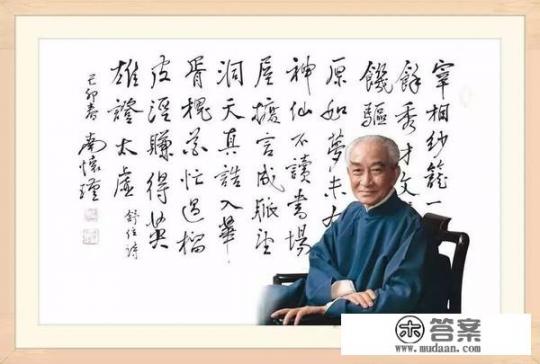 宰相紗籠一
餘秀才文
饑驅
原如夢未有
神仙不讀書場
屋摭言成脈望
洞天真誥入華
胥槐花忙過榴
皮澀賺得英
雄證太虛
舒位詩
己卯春 南懷瑾
答案
www.mudaan.com